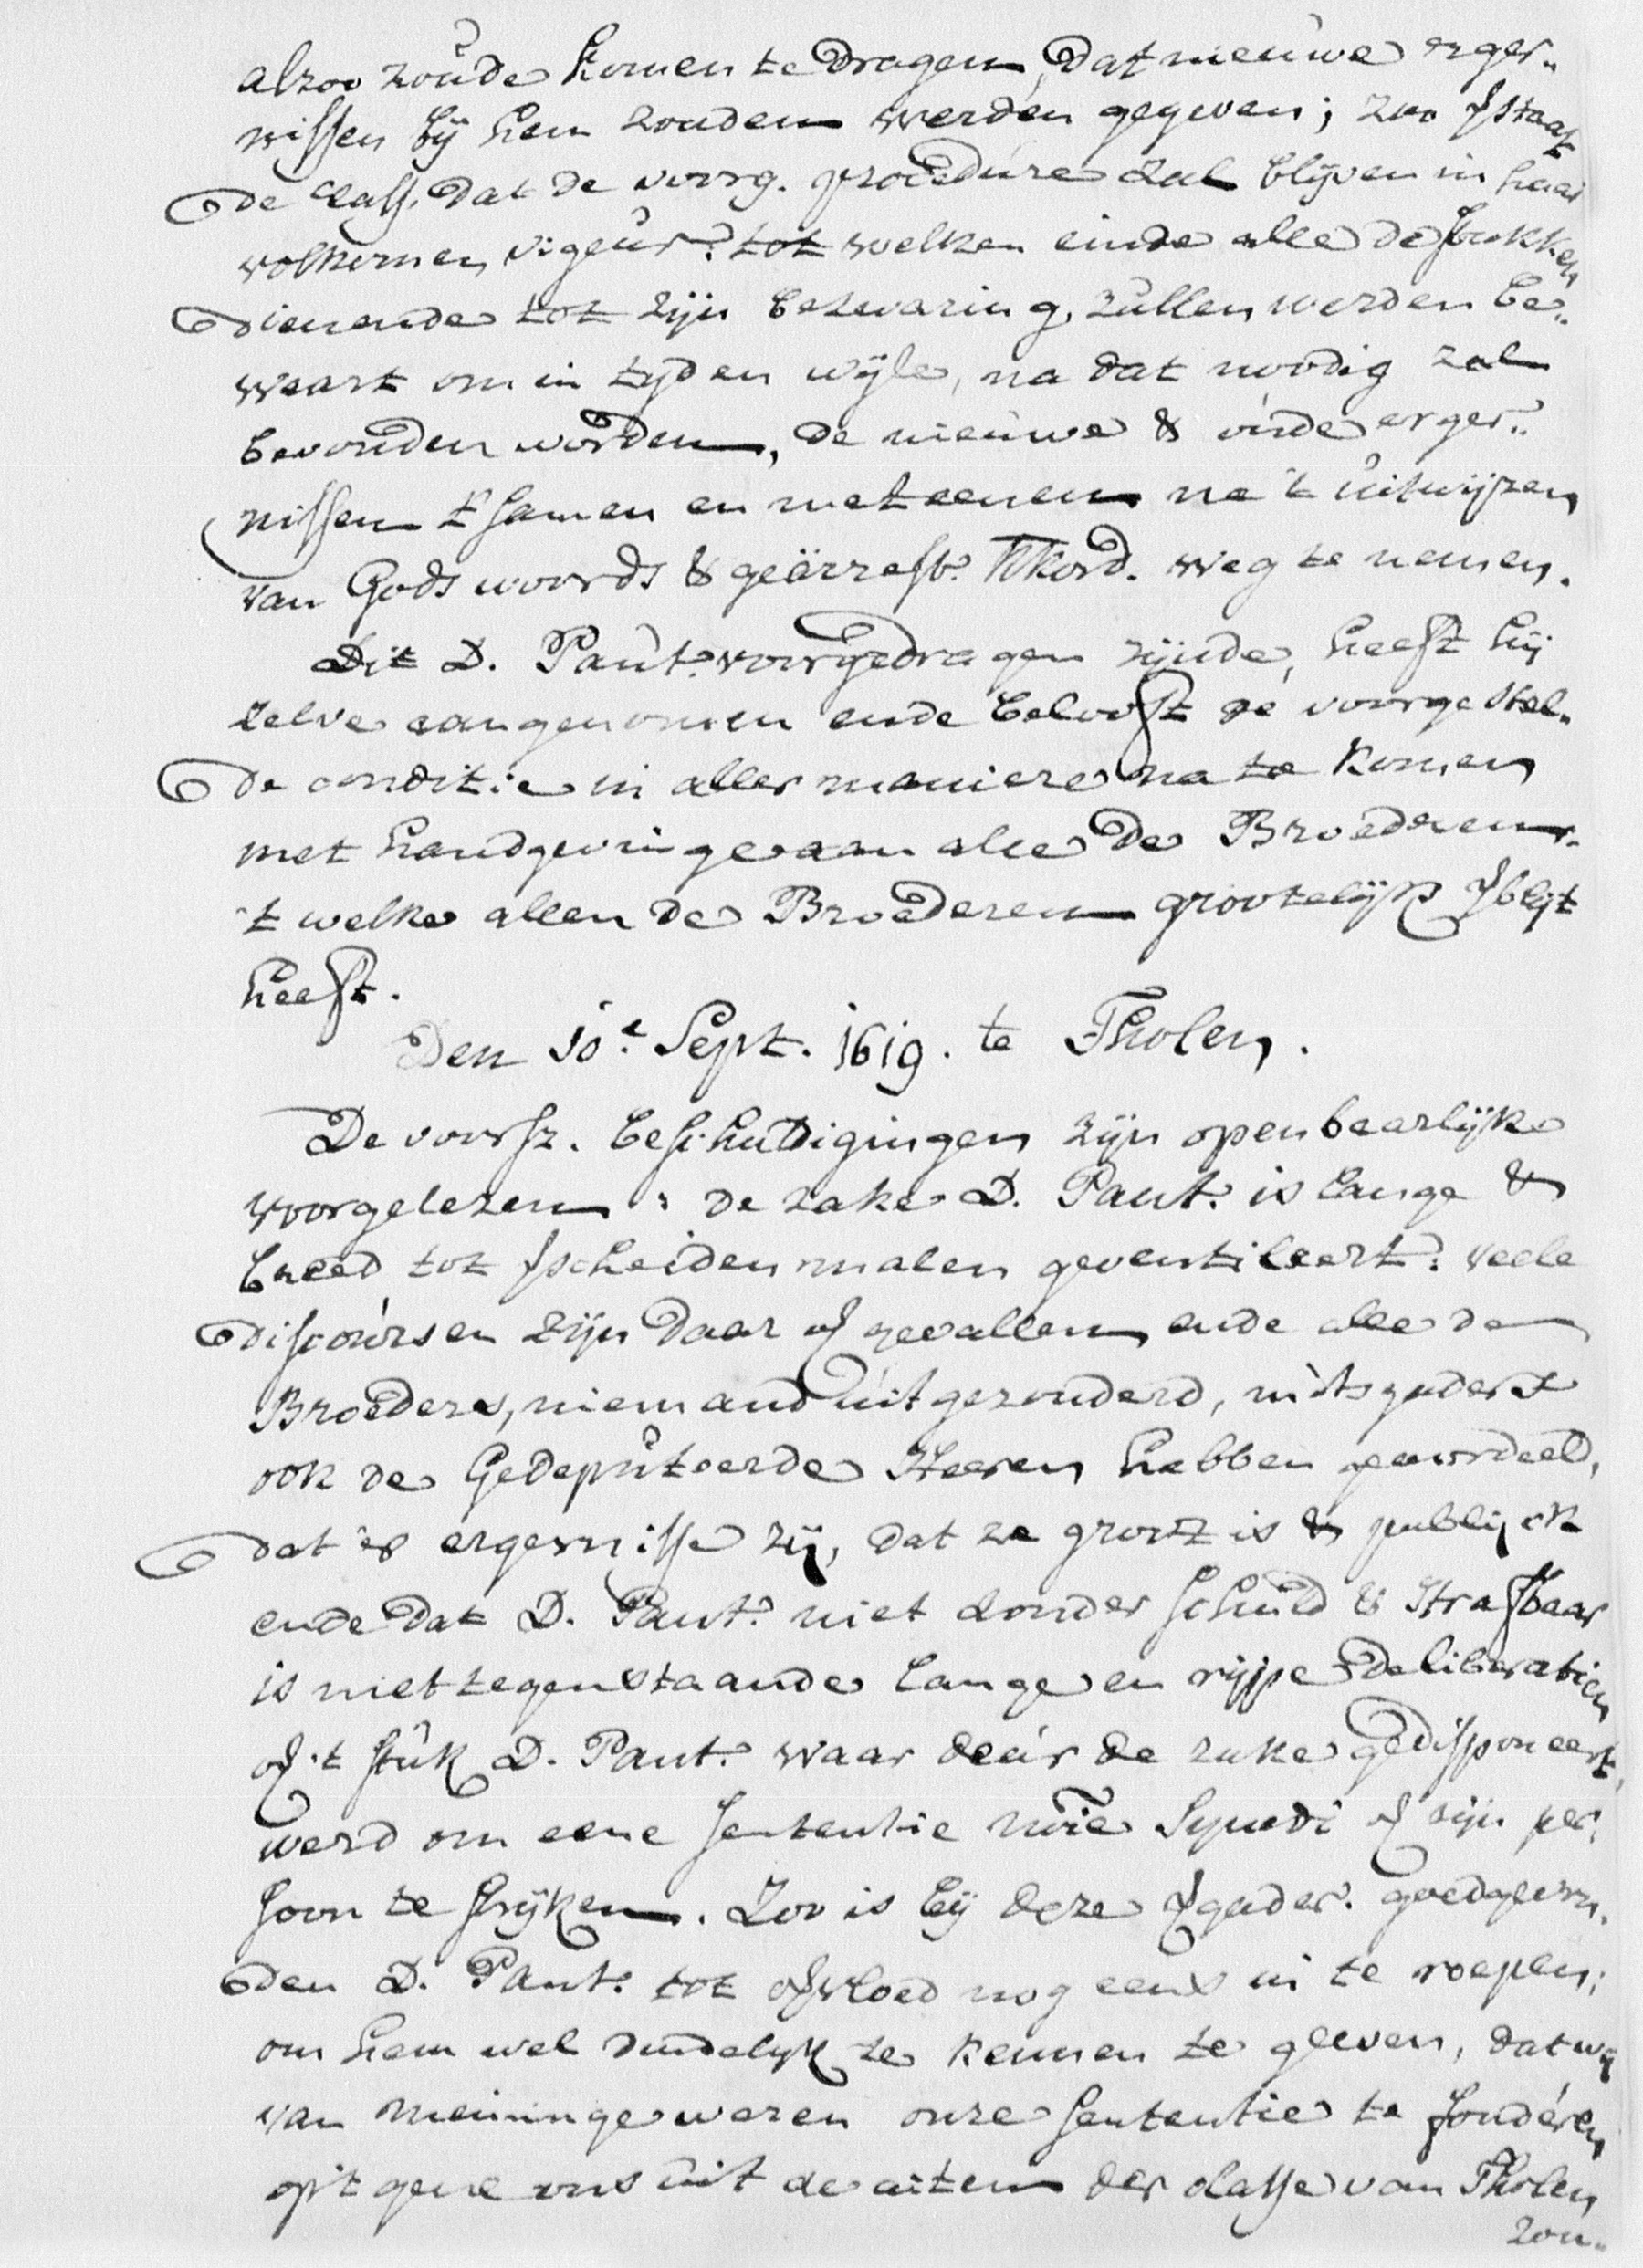 alzoo zoude komen te dragen, dat nieuwe erger„
nissen bij hem zouden werden gegeven; zoo ſstaat
de class. dat de voorg. procedure zal blijven in haar
volkomen vigeur: tot welken einde alle de stukken
dienende tot zijn bezwaring, zullen werden be„
waart om in tijd en wijle, na dat noodig zal
bevonden worden, de nieuwe & oude erger„
nissen t'samen en met eenen na 't uitwijzen
van Gods woords & geärrest. Kkord. weg te nemen.
Dit D. Paut. voorgedragen zijnde, heeft hij
zelve aangenomen ende belooft de voorgestel„
de conditie in aller maniere na te komen
met handgevinge aan alle de Broederen.
't welke allen de Broederen grootelijks ſblijt
heeft.
Den 10e Sept. 1619. te Tholen.
De voorsz. beschuldigingen zijn openbaarlijke
voorgelezen: de zake D. Paut. is lange &
breed tot ſscheiden malen geventileert: veele
discoursen zijn daar of gevallen ende alle de
Broeders, niemand uitgezonderd, mitsgaders
ook de Gedeputeerde Heeren hebben geoordeeld,
dat 'er ergernisse zij, dat ze groot is & publijck
ende dat D. Paut. niet zonder schuld & strafbaar
is niettegenstaande lange en rijpe deliberatien
of 't stuk D. Paut. waar deur de zake gedisponeert
werd om eene sententie nōie Synodi of zijn per„
soon te strijken. Zoo is bij deze ſgader. goedgevon„
den D. Paut. tot ofvloed nog eens in te roepen;
om hem wel duidelijk te kennen te geeven, dat wij
van meininge waren onze sententie te fonderen
op 't gene ons uit de acten der classe van Tholen
zou„